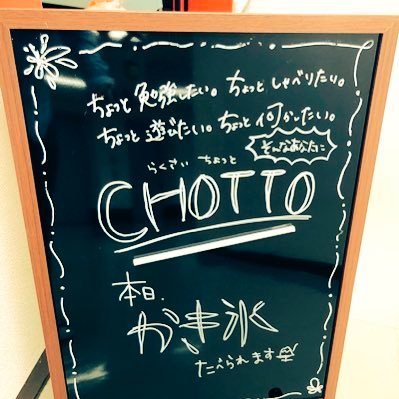 ちょっと勉強したい。ちょっとしゃべりたい。
ちょっと遊びたい。ちょっと何かしたい。
そんなあなたに
らくさい ちょっと
CHOTTO
本日、
かき氷
たべられます